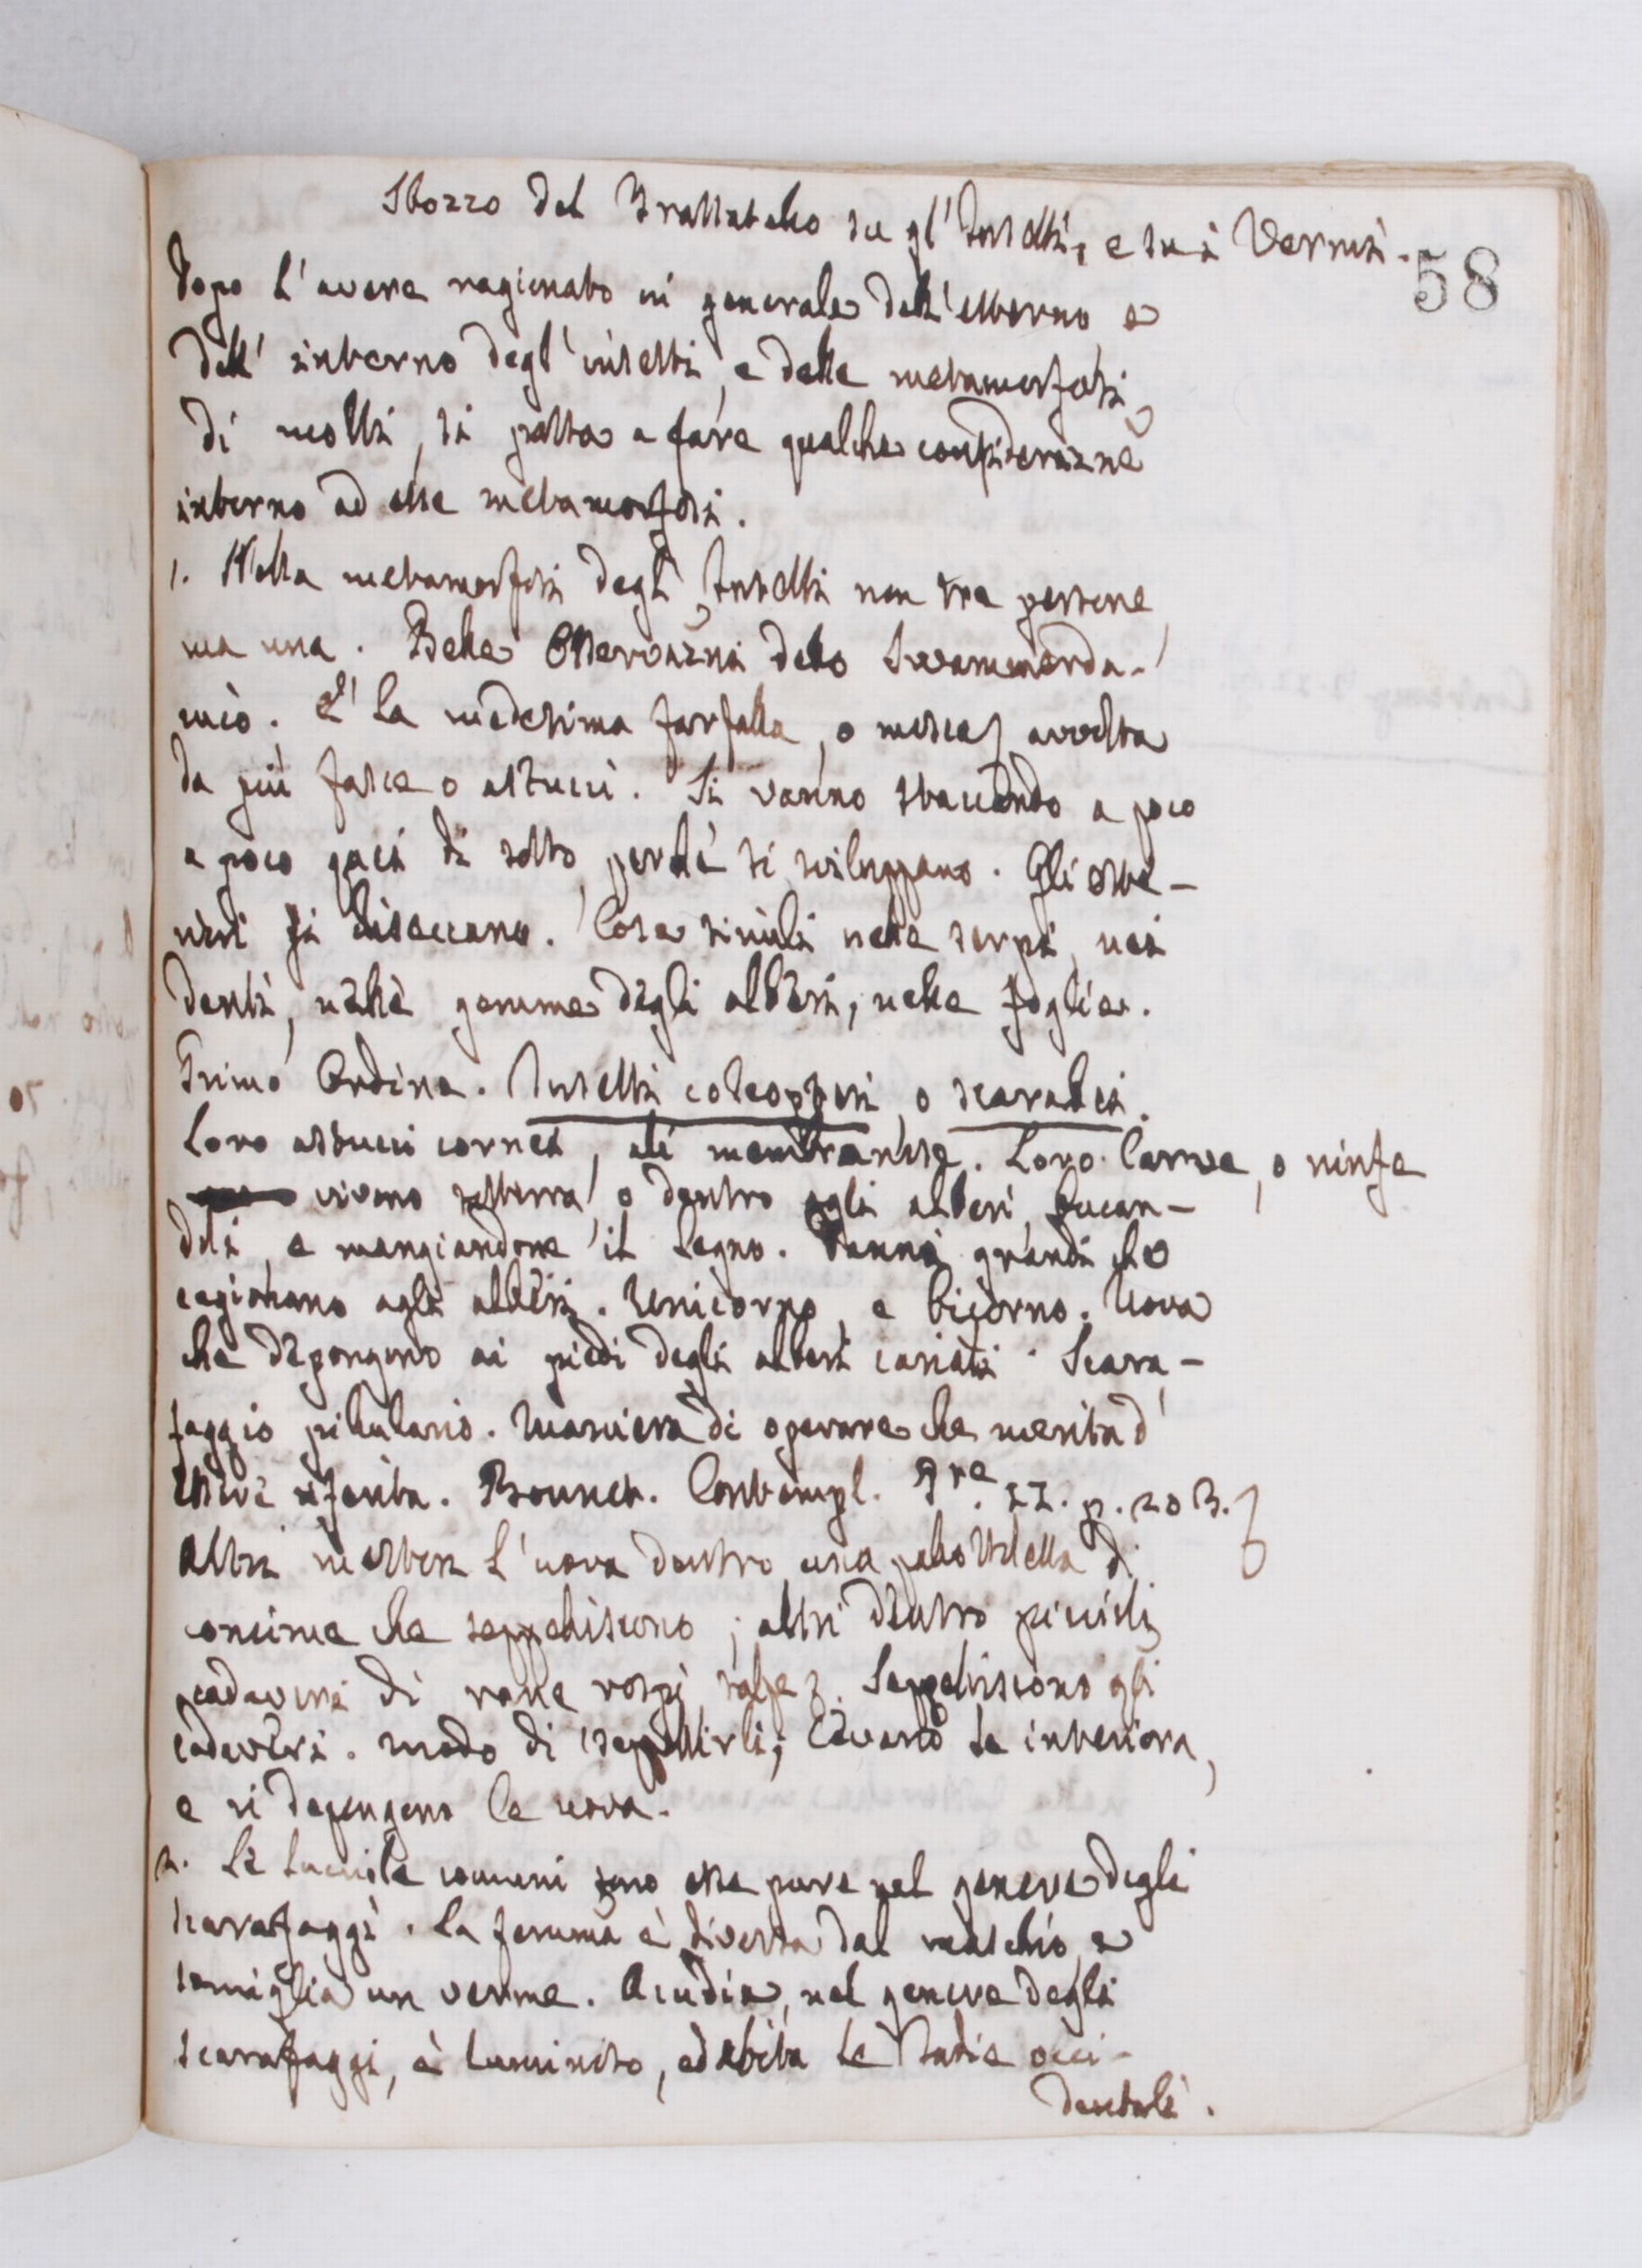 Sbozzo del Trattatello su gl'Insetti, e su i Vermi.
58
Dopo l'avere ragionato in generale dell'esterno, e
dell'interno degl'insetti, e delle metamorfosi
di molti, si passa a fare qualche considerazne
intorno ad esse metamorfosi.
1. Nella metamorfosi degl'Insetti non tre persone
ma una. Belle Osservazni dello Swammerda-
mio. È la medesima farfalla, o mosca avvolta
da più fasce o astucci. Si vanno staccando a poco
a poco quei di sotto, perchè si sviluppano. Gli este-
riori si diseccano. Cose simili nelle serpi, nei
denti, nelle gemme degli alberi, nelle foglie.
Primo Ordine. Insetti coleopteri, o scarabei.
Loro astucci cornei, ali membranose. Loro larve, o ninfe
vivono sotterra, o dentro agli alberi, bucan-
doli, e mangiandone il legno. Danni grandi che
cagionano agli alberi. Unicorno, e bicorno. Uova
che depongono ai piedi degli alberi cariati. Scara-
faggio pilulario. Maniera di operare che merita d'
essere riferita. Bonnet. Contempl. T. II. p. 203.
Altri metton l'uova dentro una pallottolella di
concime che seppeliscono; altri dentro piccioli
cadaveri di rane rospi talpe. Seppeliscono gli
cadaveri. Modo di seppellirli; Cavano le interiora,
e vi depongono le uova.
2. Le lucciole comuni sono esse pure nel genere degli
scarafaggi. La femina è diversa dal maschio, e
somiglia un verme. Acudia, nel genere degli
scarafaggi, è luminoso, ed abita le Indie occi-
dentali.